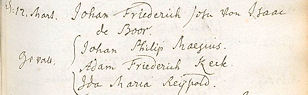 d. 12. Mart. Johan Friederich Sohn von Isaac
de Boor.
Gevatt. Johan Philip Maegius.
Adam Friederich Keck
Ida Maria Reypold.